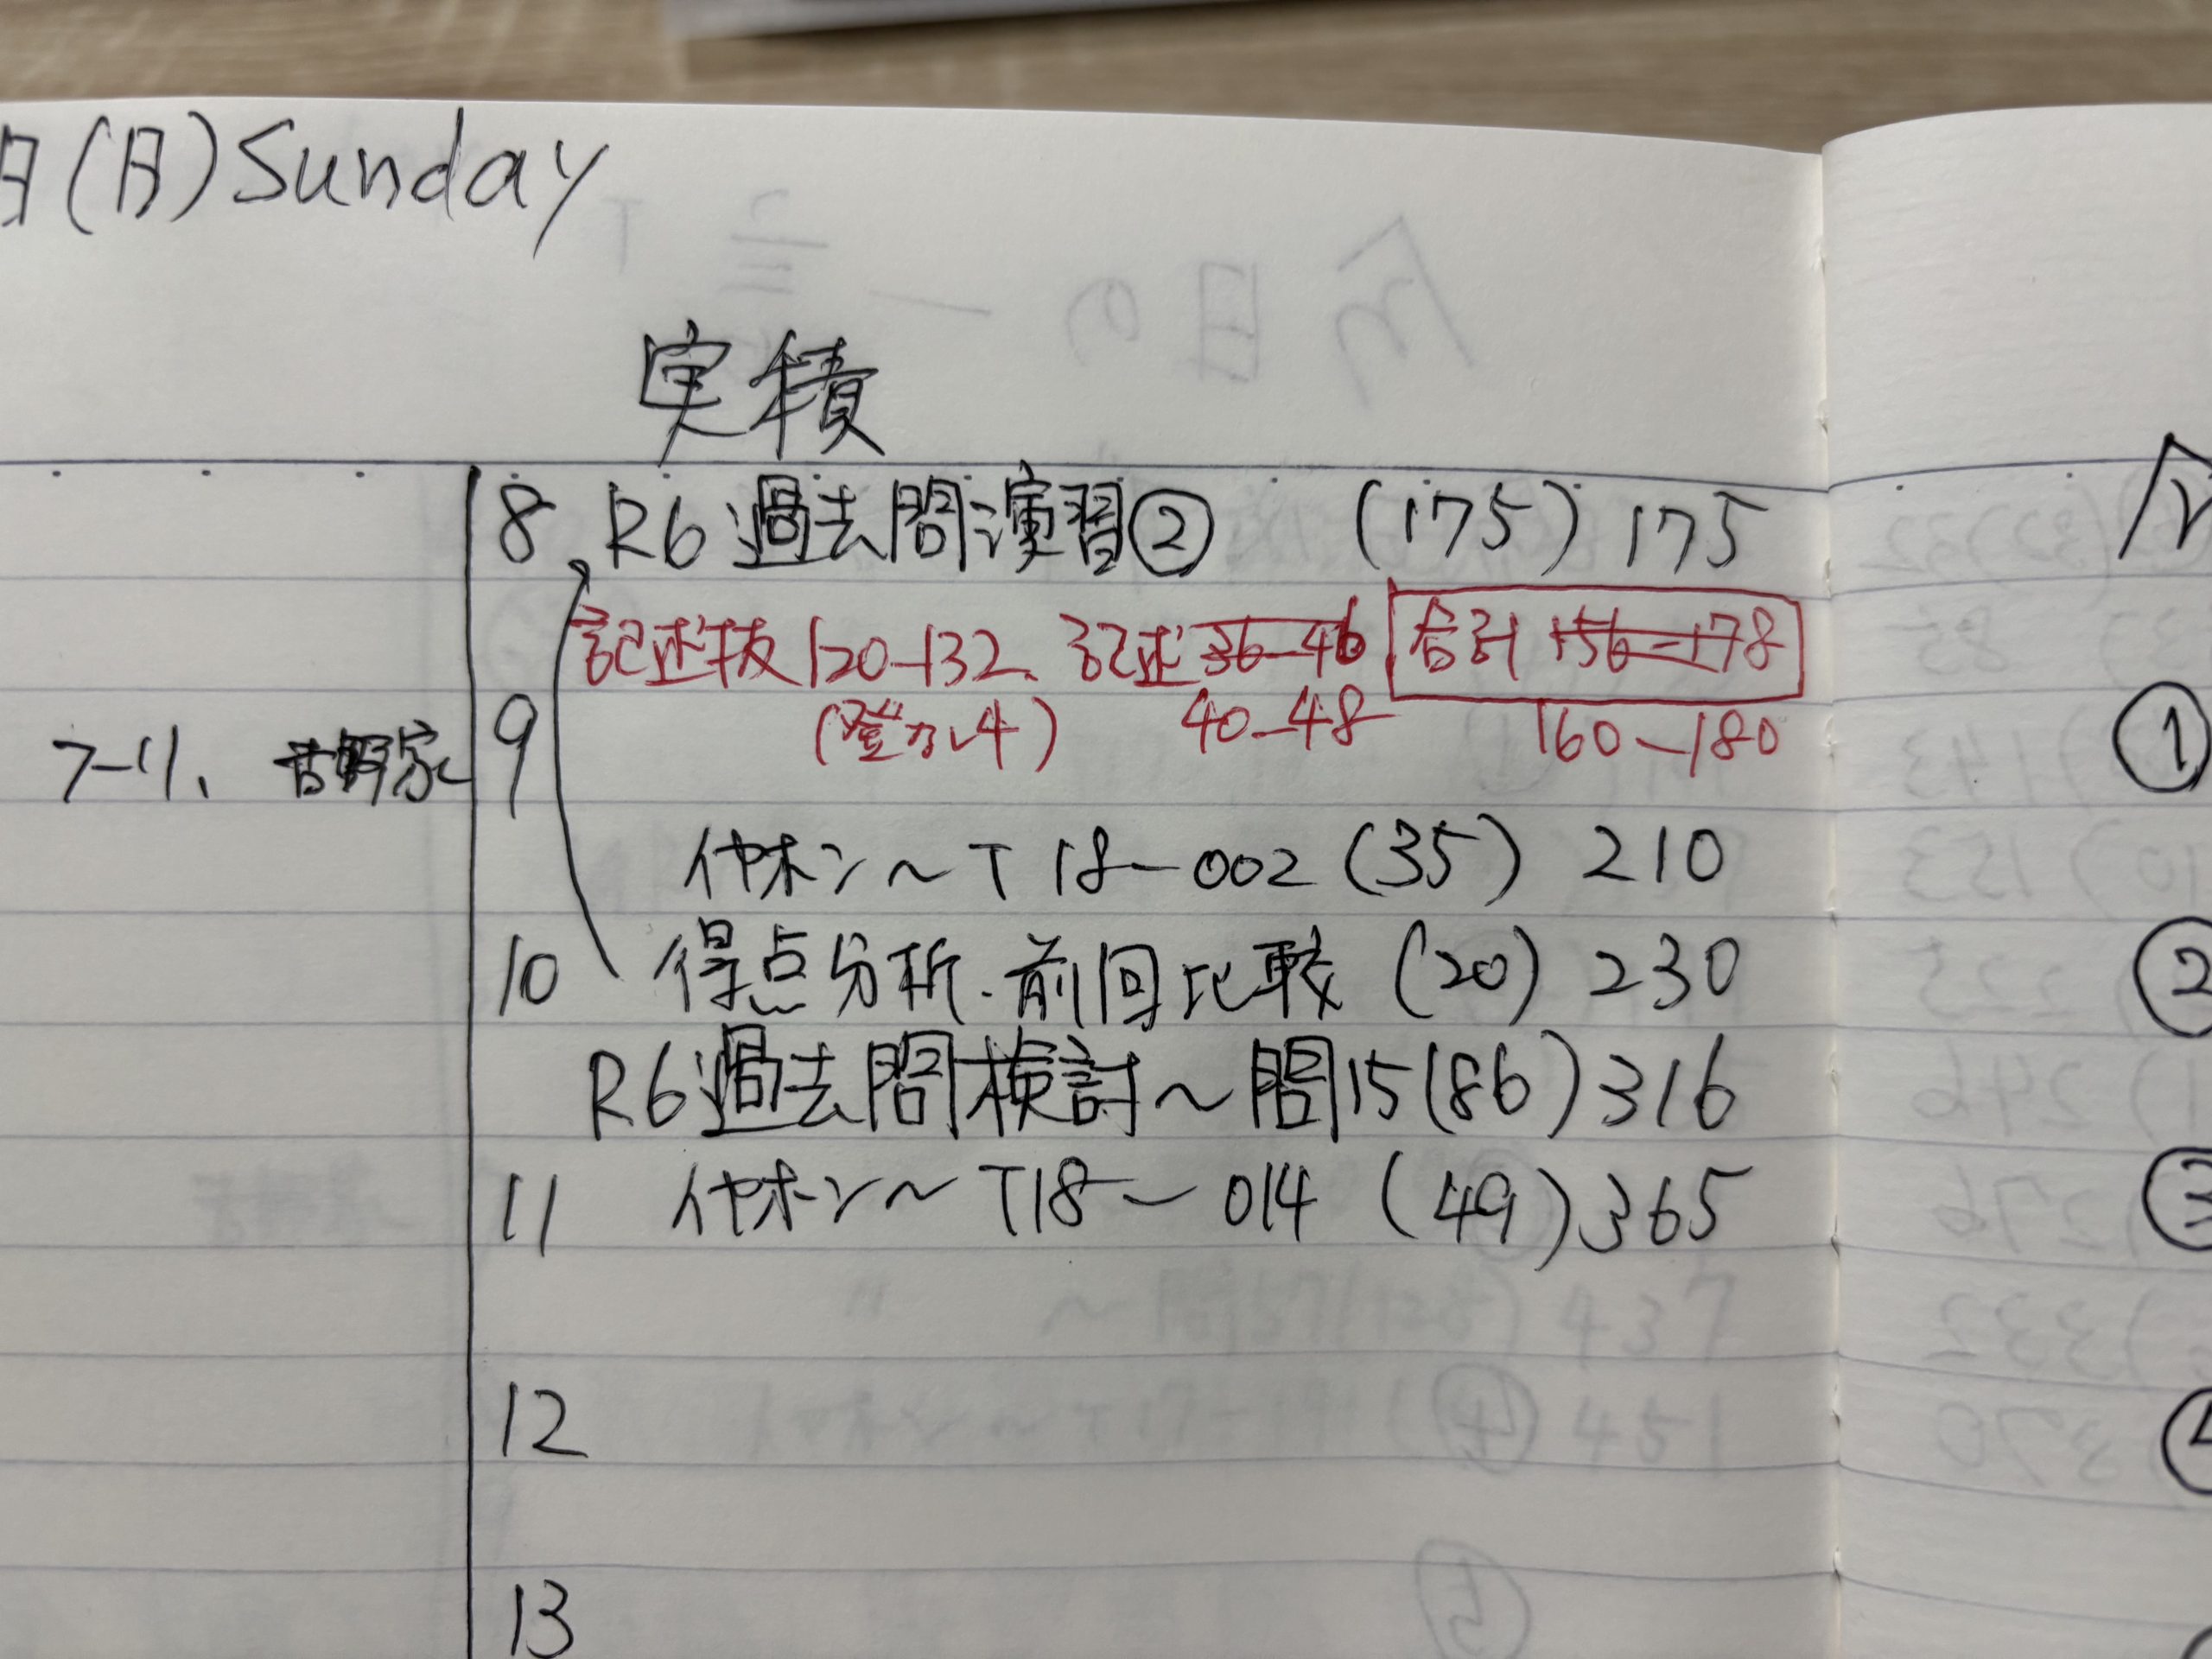 日(日)Sunday
実積
8 R6過去問演習② (175) 175
記述抜120-132、記述36-46 合計156-178
9 (登ズレ4) 40-48 160-180
7-11、吉野家
イヤホン〜T18-002 (35) 210
10 得点分析・前回比較 (20) 230
R6過去問検討〜問15(86) 316
11 イヤホン〜T18-014 (49) 365
12
13
①
②
③